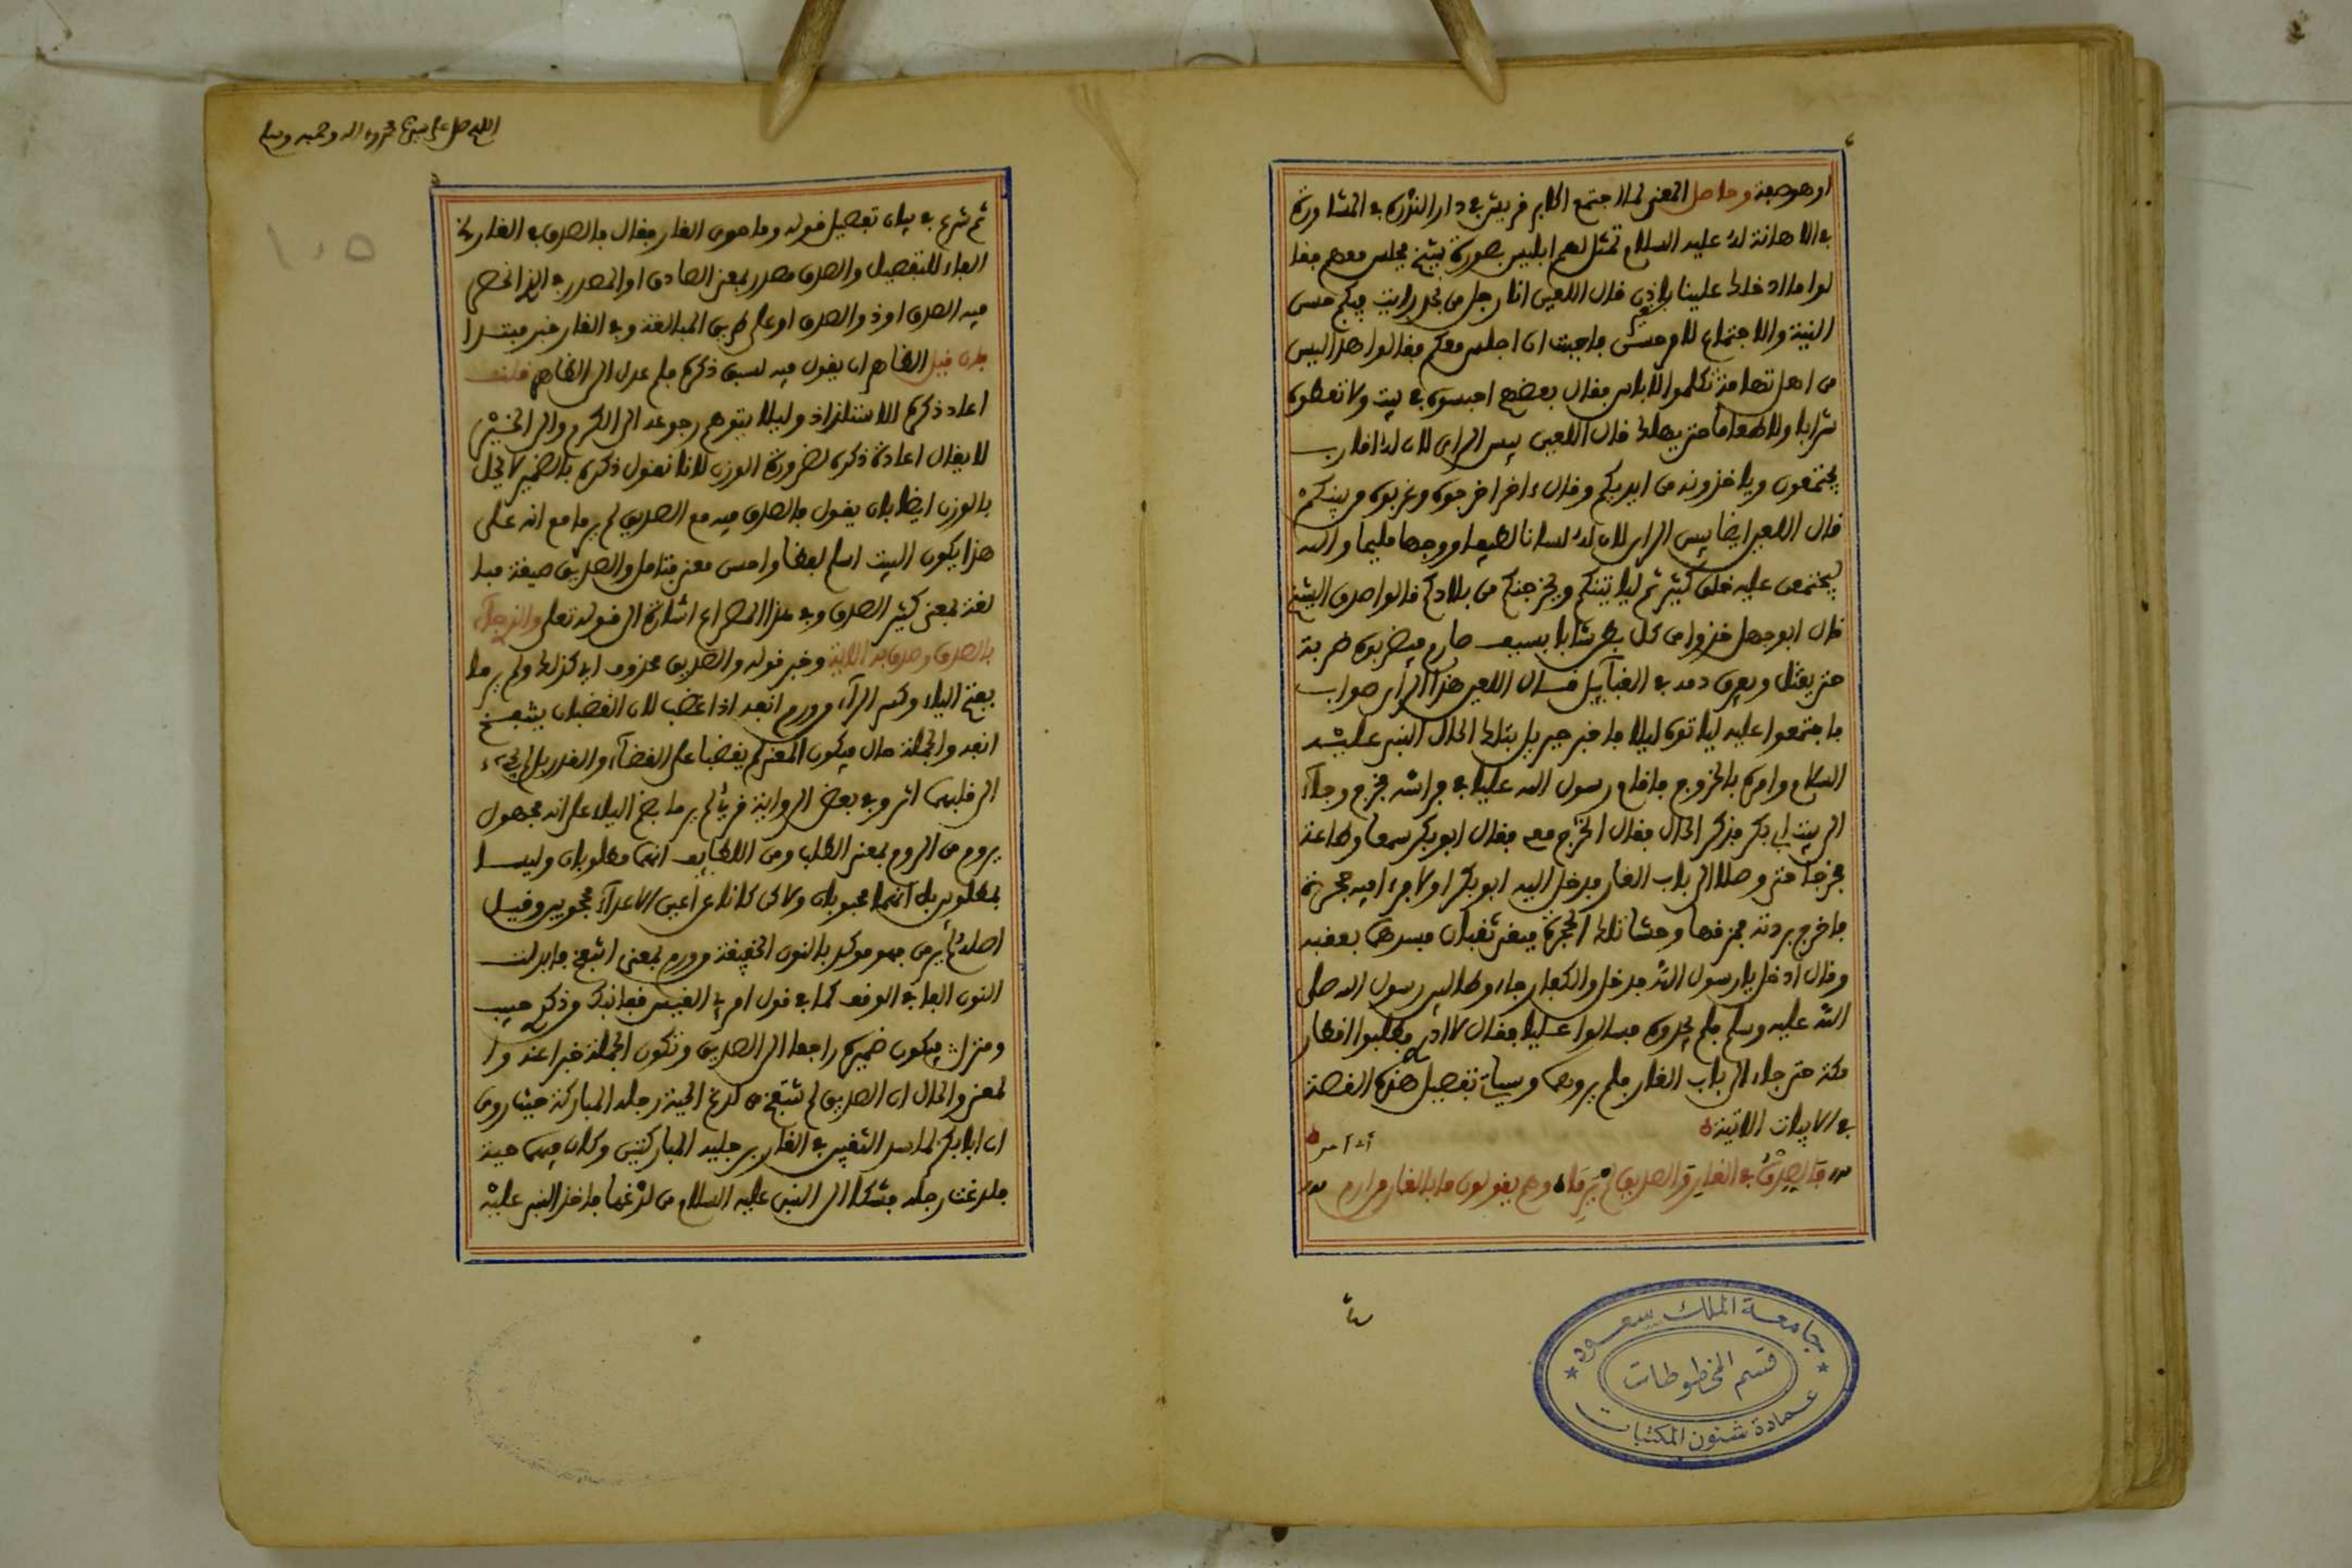 او هو صفة وحاصل المعنى لما اجتمع اكابر قريش في دار الندوة في المشاورة
في الاهانة له عليه السلام تمثل لهم ابليس بصورة شيخ فجلس معهم فقا
لوا ما ادخلك علينا بلا اذن قال اللعين انا رجل من نجد رايت فيكم حسن
النية والاجتماع لامر حسن فاحببت ان اجلس معكم فقالوا هذا ليس
من اهل تهامة تكلموا لا باس فقال بعضهم احبسوه في بيت ولا تعطوه
شرابا ولا طعاما حتى يهلك قال اللعين بيس الراي لان له اقارب
يجتمعون وياخذونه من ايديكم وقال ءاخر اخرجوه وغربوه من بينكم
قال اللعين ايضا بيس الراي لان له لسانا لطيفا ووجها مليحا والله
ليجتمعن عليه خلق كثير ثم لياتينكم ويخرجنكم من بلادكم قالوا صدق الشيخ
قال ابو جهل خذوا من كل بطن شابا بسيف صارم فيضربوه ضربة
حتى يقتل ويفرق دمه في القبآيل فقال اللعين هذا الراي صواب
فاجتمعوا عليه لياتوه ليلا فاخبر جبريل بتلك الحال النبي عليه
السلام وامره بالخروج فاقام رسول الله عليا في فراشه فخرج وجآء
الى بيت ابي بكر فذكر الحال فقال اخرج معي فقال ابو بكر سمعا وطاعة
فخرجا حتى وصلا الى باب الغار فدخل اليه ابو بكر اولا فرءا فيه جحرة
فاخرج بردته فمزقها وحشا تلك الحجرة فبقي ثقبان فسدهما بعقبه
وقال ادخل يا رسول الله فدخل والكفار جاءوا طالبين رسول الله صلى
الله عليه وسلم فلم يجدوه فسالوا عليا فقال لا ادري فطلبوا اقطار
مكة حتى جاء الى باب الغار فلم يروهما وسياتي تفصيل هذه القصة
في الابيات الاتية
فالصدق في الغار والصديق لم يرما وهم يقولون ما بالغار من ارم
اللهم صل على سيدنا محمد وءاله وصحبه وسلم
ثم شرع في بيان تفصيل قوله وما حوى الغار فقال فالصدق في الغار
الفاء للتفصيل والصدق مصدر بمعنى الصادق او المصدر به الذي انحصر
فيه الصدق او ذو الصدق او على طريق المبالغة وفي الغار خبر مبتدا
فان قيل الظاهر ان يقول فيه لسبق ذكره فلم عدل الى الظاهر قلت
اعاد ذكره للاستلذاذ وليلا يتوهم رجوعه الى الكرم والى الخير
لا يقال اعادة ذكره لضرورة الوزن لانا نقول ذكره بالضمير لا يخل
بالوزن ايضا بان يقول فالصدق فيه مع الصديق لم يرما مع انه على
هذا يكون البيت اسلم لفظا واحسن معنى فتامل والصديق صيغة مبا
لغة بمعنى كثير الصدق وفي هذا المصراع اشارة الى قوله تعلى والذي جآء
بالصدق وصدق به الاية وخبر قوله والصديق محذوف اي كذلك ولم يرما
بفتح الياء وكسر الرآء من ورم انفه اذا غضب لان الغضبان ينتفخ
انفه والجملة حال فيكون المعنى لم يغضبا على القضآء والقدر بل لم يجيء
الى قلبهما اثر وفي بعض الرواية قرئ لم يرما بضم الياء على انه مجهول
يروم من الروم بمعنى الطلب ومن اللطايف انهما مطلوبان وليسا
بمطلوبين بل انهما محبوبان ولاكن كانا عن اعين الاعدآء محجوبين وقيل
اصله لم يرمن فهو موكد بالنون الخفيفة وورم بمعنى انتفخ فابدلت
النون الفا في الوقف كما في قول امرئ القيس قفا نبك من ذكرى حبيب
ومنزل فيكون ضميره راجعا الى الصديق وتكون الجملة خبرا عنه وا
لمعنى والحال ان الصديق لم تنتفخ من لدغ الحية رجله المباركة حيث روي
ان ابا بكر لما سد الثقبين في الغار برجليه المباركتين وكان فيهما حية
فلدغت رجله فشكا الى النبي عليه السلام من لدغها فاخذ النبي عليه
١٠٥
جامعة الملك سعود
قسم المخطوطات
عمادة شئون المكتبات